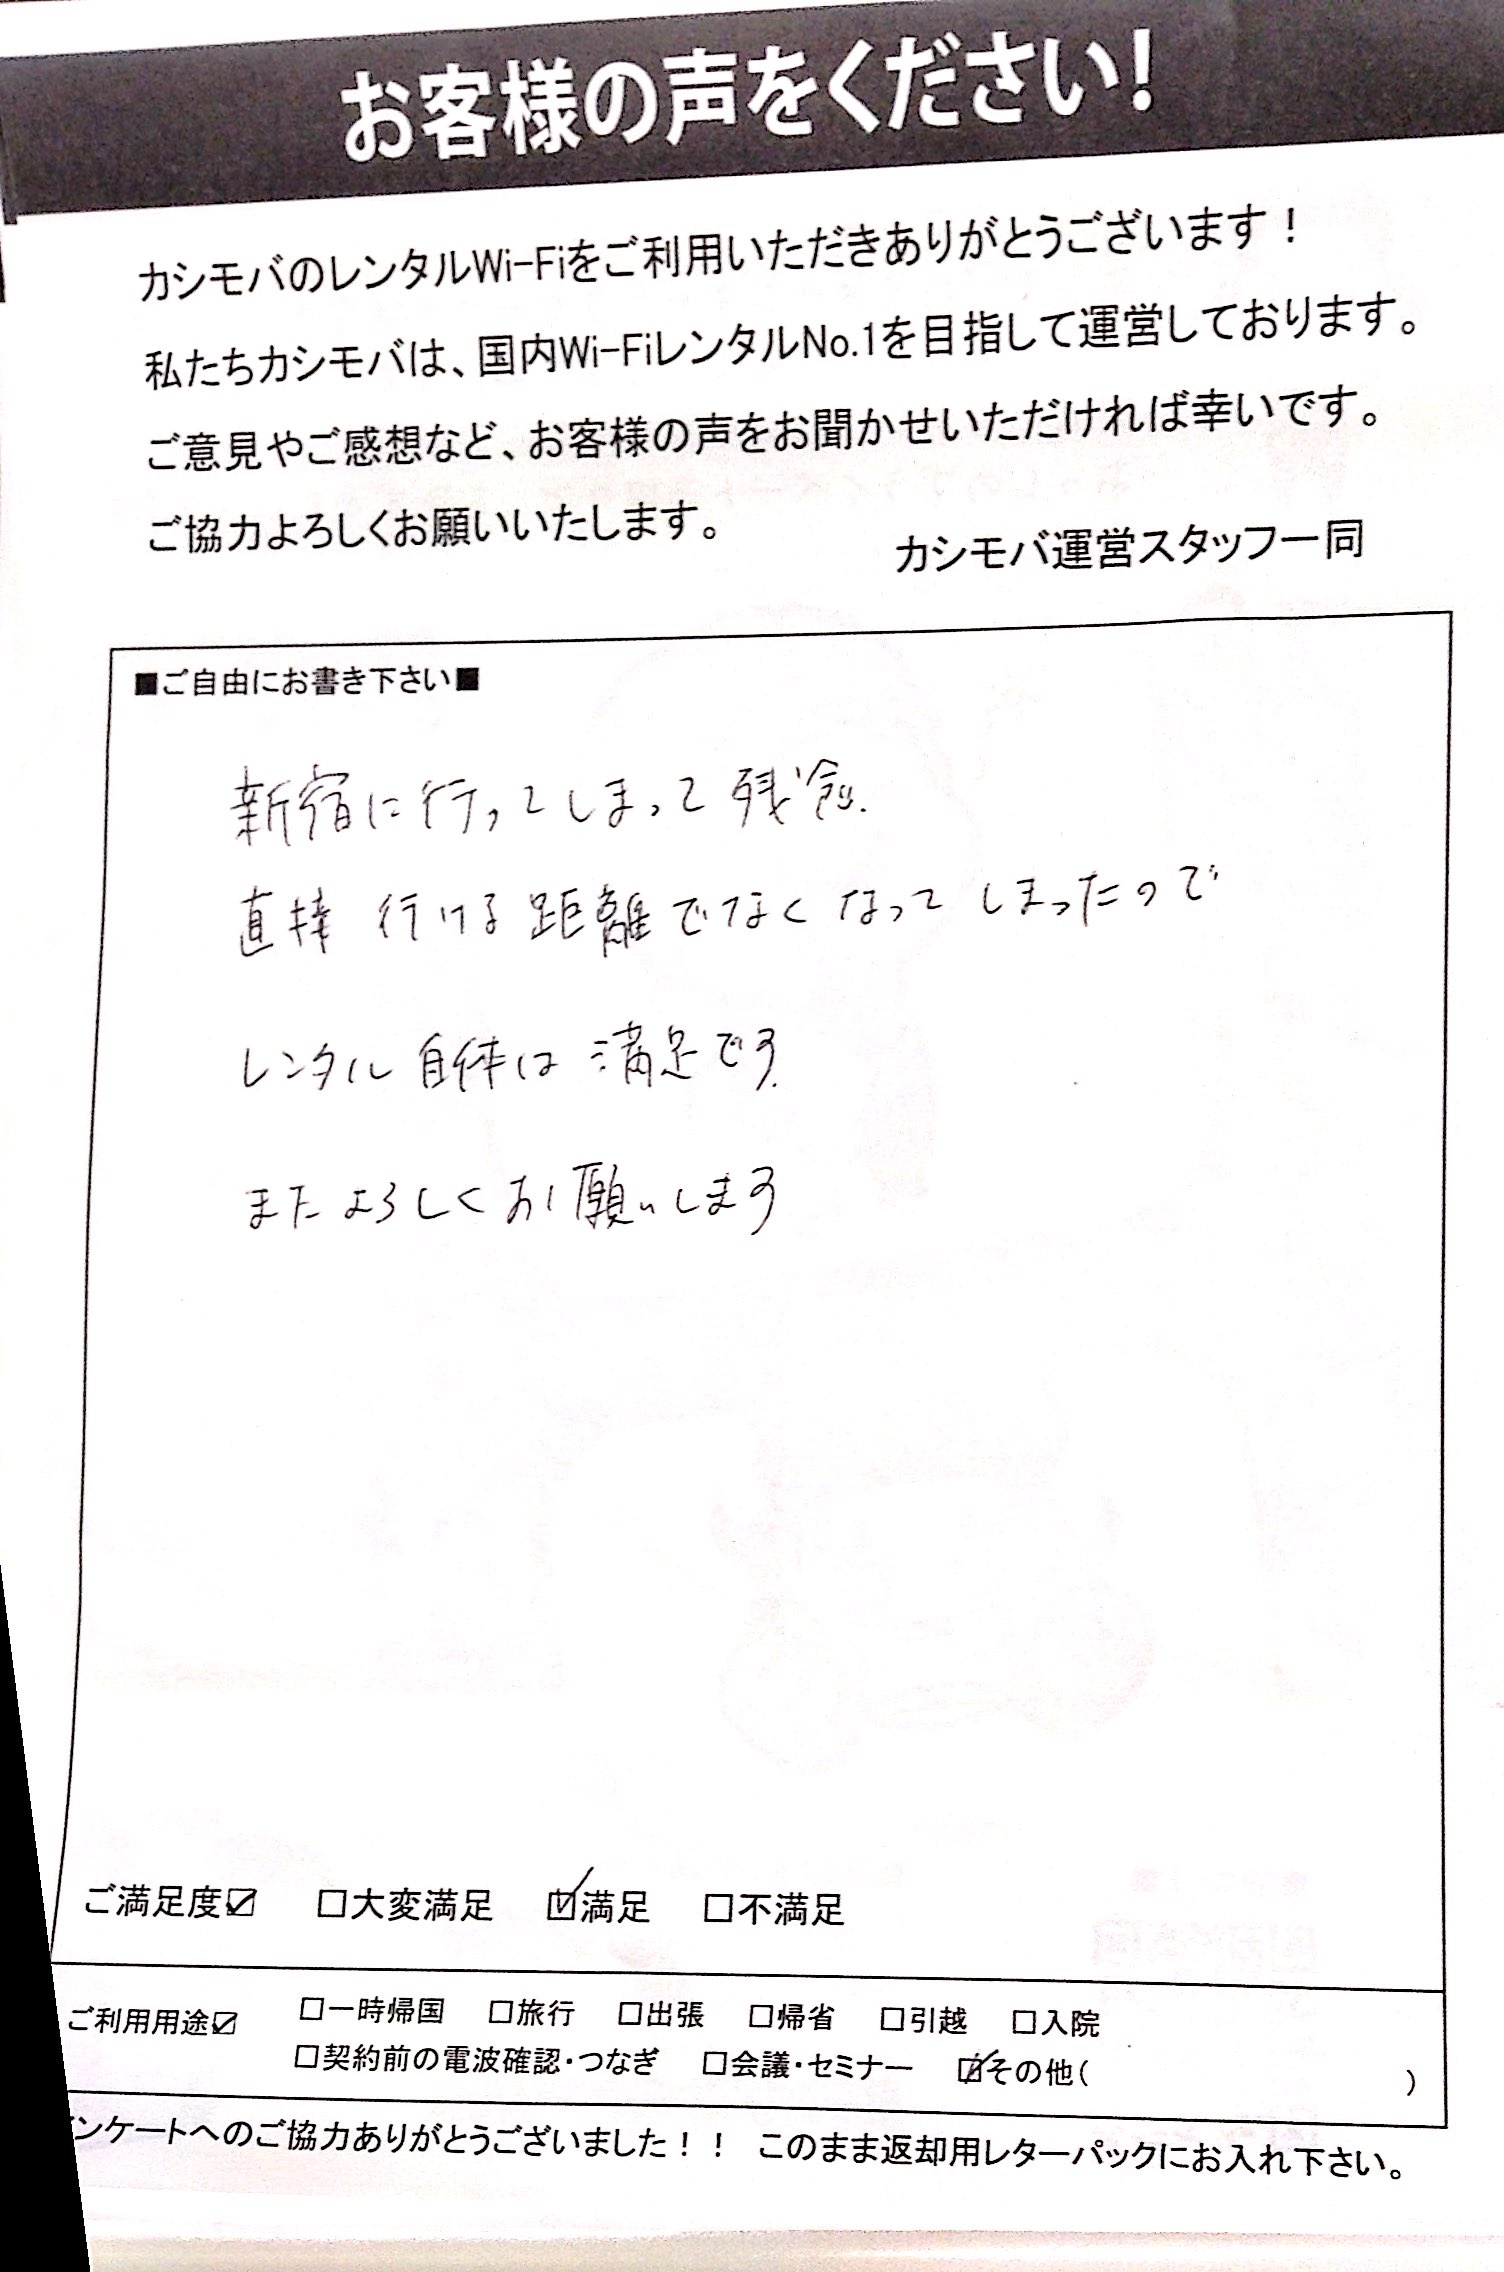 お客様の声をください!
カシモバのレンタルWi-Fiをご利用いただきありがとうございます！
私たちカシモバは、国内Wi-FiレンタルNo.1を目指して運営しております。
ご意見やご感想など、お客様の声をお聞かせいただければ幸いです。
ご協力よろしくお願いいたします。
カシモバ運営スタッフ一同
■ご自由にお書き下さい■
新宿に行ってしまって残念.
直接 行ける距離でなくなってしまったので
レンタル自体は満足です.
またよろしくお願いします
ご満足度☑ □大変満足 ☑満足 □不満足
ご利用用途☑ □一時帰国 □旅行 □出張 □帰省 □引越 □入院
□契約前の電波確認・つなぎ □会議・セミナー ☑その他( )
ンケートへのご協力ありがとうございました！！ このまま返却用レターパックにお入れ下さい。